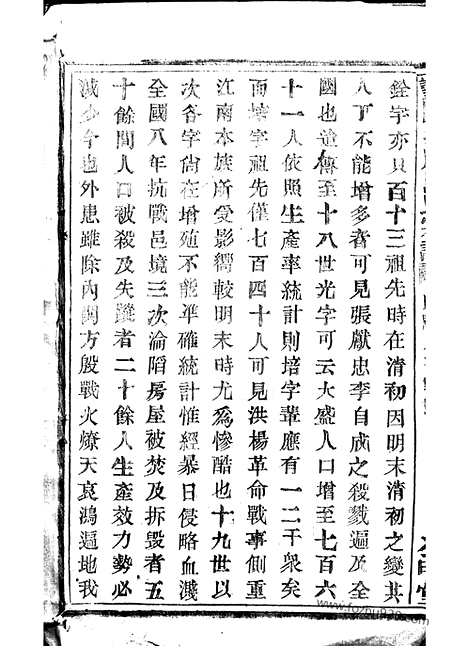 銓字亦只百十三祖先時在清初因明末清初之變其
人丁不能增多者可見張獻忠李自成之殺戮遍及全
國也遞傳至十八世光字可云大盛人口增至七百六
十一人依照生產率統計則培字輩應有一二千衆矣
而培字祖先僅七百四十人可見洪楊革命戰事側重
江南本族所受影嚮較明末時尤爲慘酷也十九世以
次各字尙在增殖不能準確統計惟經暴日侵略血濺
全國八年抗戰邑境三次淪陷房屋被焚及拆毀者五
十餘間人口被殺及失蹤者二十餘人生產效力勢必
減少今也外患雖除內鬨方殷戰火燎天哀鴻遍地我